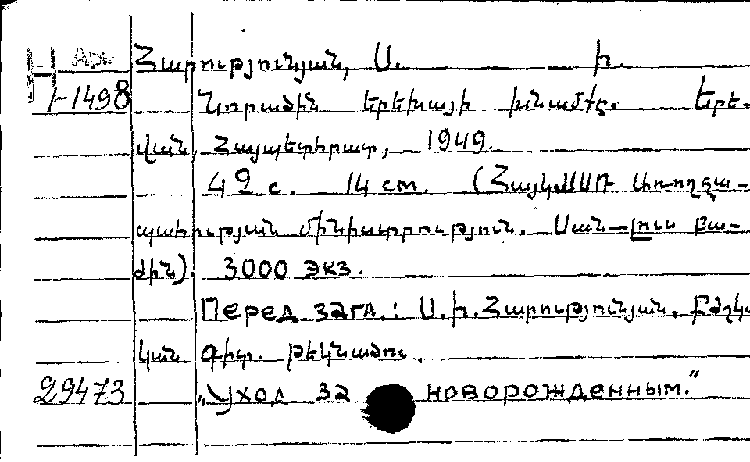 Հարությունյան, Ս. Ի.
1-1498 Նորածին երեխայի խնամքը. Երե-
վան, Հայպետհրատ, 1949.
49 с. 14 см. (ՀայկՍՍՌ Առողջա-
պահության մինիստրություն. Սան-լուս բա-
ժին) 3000 экз.
Перед загл.: Ս. Ի. Հարությունյան. Բժշկա-
կան գիտ. թեկնածու.
29473 „Уход за новорожденным."